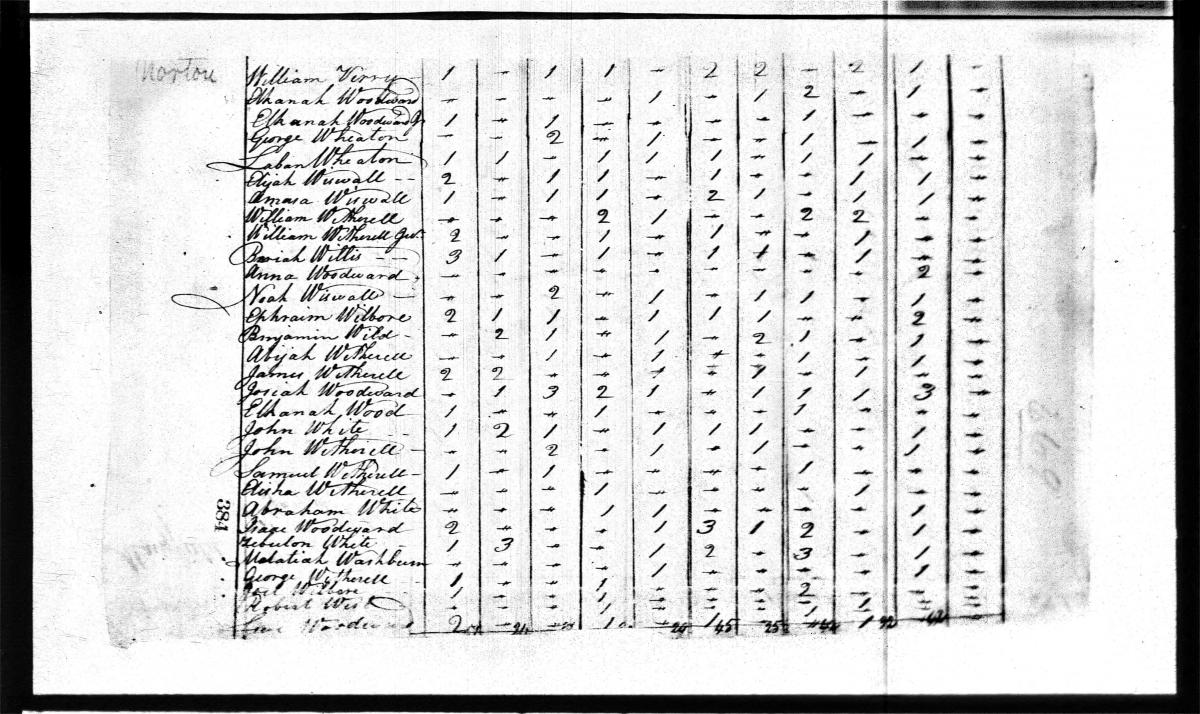 Norton
William Verry 1 - 1 1 - 2 2 - 2 1 -
Elkanah Woodward - - - - 1 - 1 2 - 1 -
Elkanah Woodward Jr 1 - 1 - - - - 1 - - -
George Wheaton - - 2 - 1 - - 1 - 1 -
Laban Wheaton 1 1 - 1 1 1 - 1 1 - -
Elijah Wiswall - - 2 - 1 1 - 1 - - 1 1 -
Amasa Wiswall 1 - 1 1 - 2 1 - 1 1 -
William Witherell - - - 2 1 - - 2 2 - -
William Witherell Jur. 2 - - 1 - 1 - - 1 - -
Willis - - 3 1 - 1 - 1 1 - 1 - -
Anna Woodward - - - - - - - - - 2 -
Noah Wiswall - - - 2 - 1 - 1 1 - 1 -
Ephraim Wilbore 2 1 1 - 1 1 1 - - 2 -
Benjamin Wild - - 2 1 - 1 - 2 1 - 1 -
Abijah Witherell - - 1 - 1 - - 1 - 1 -
James Witherell 2 2 - - 1 - 1 - 1 - -
Josiah Woodward - 1 3 2 1 - 1 1 1 3 -
Elkanah Wood 1 - - 1 - - - 1 - - -
John White - 1 2 1 - 1 1 1 - - 1 -
John Witherell - - - 2 - 1 - 1 - - 1 -
Samuel Witherell - 1 - 1 - - - - 1 - - -
Elisha Witherell - - - 1 - - - - 1 - -
Abraham White - - - 1 1 - - - 1 - -
Isaac Woodward 2 - - - - 3 1 2 - 1 -
Zebulon White 1 3 - - 1 2 - 3 - 1 -
Washburn - - - - 1 - - - - 1 -
George Witherell - 1 - - 1 - - - 2 - - -
Robert West
Woodward 2 - - 1 - 1 - - 1 - -
384